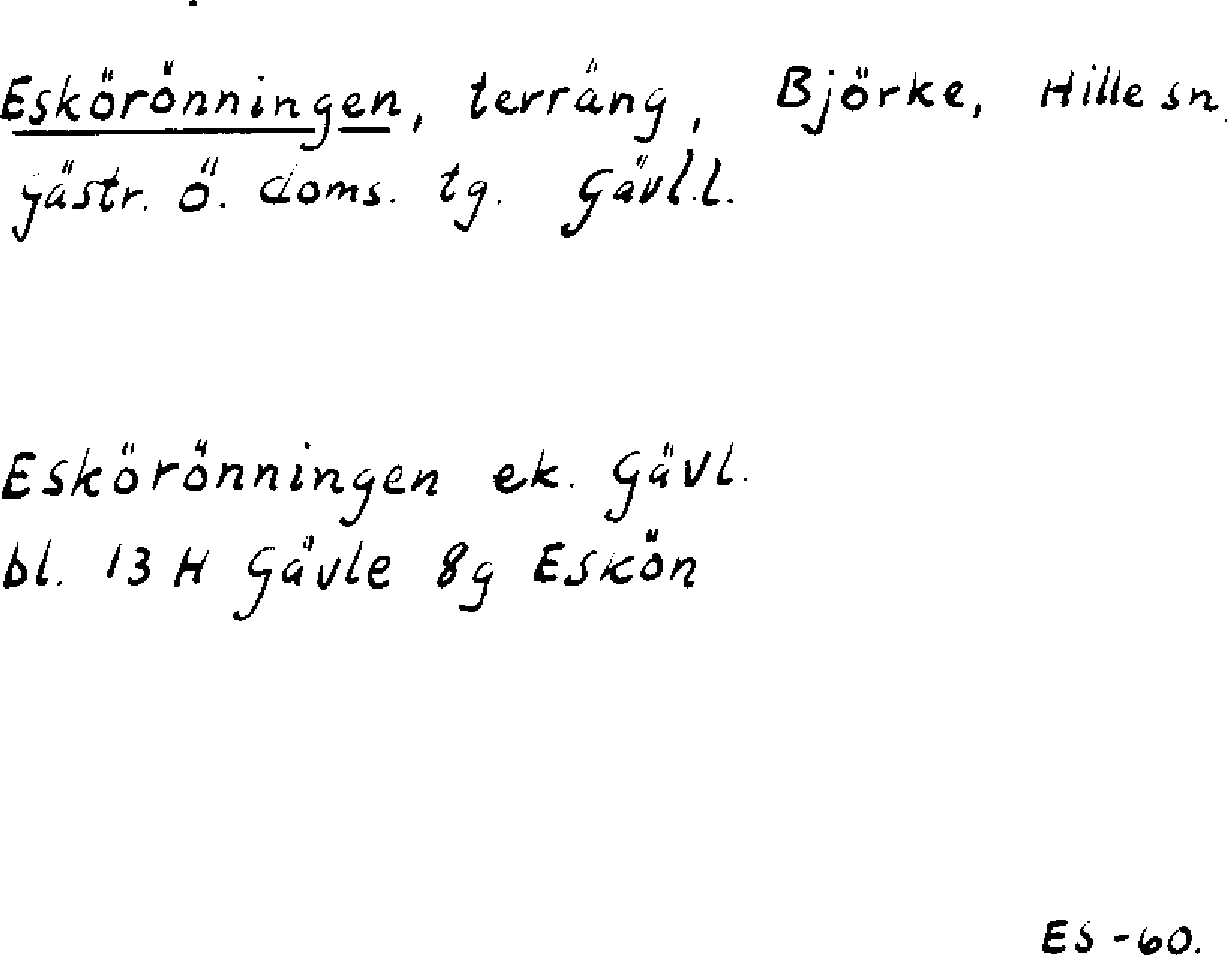 Eskörönningen, terräng, Björke, Hille sn.
Gästr. ö. doms. tg. Gävl.l.
Eskörönningen ek. Gävl.
bl. 13 H Gävle 8g Eskön
ES -60.